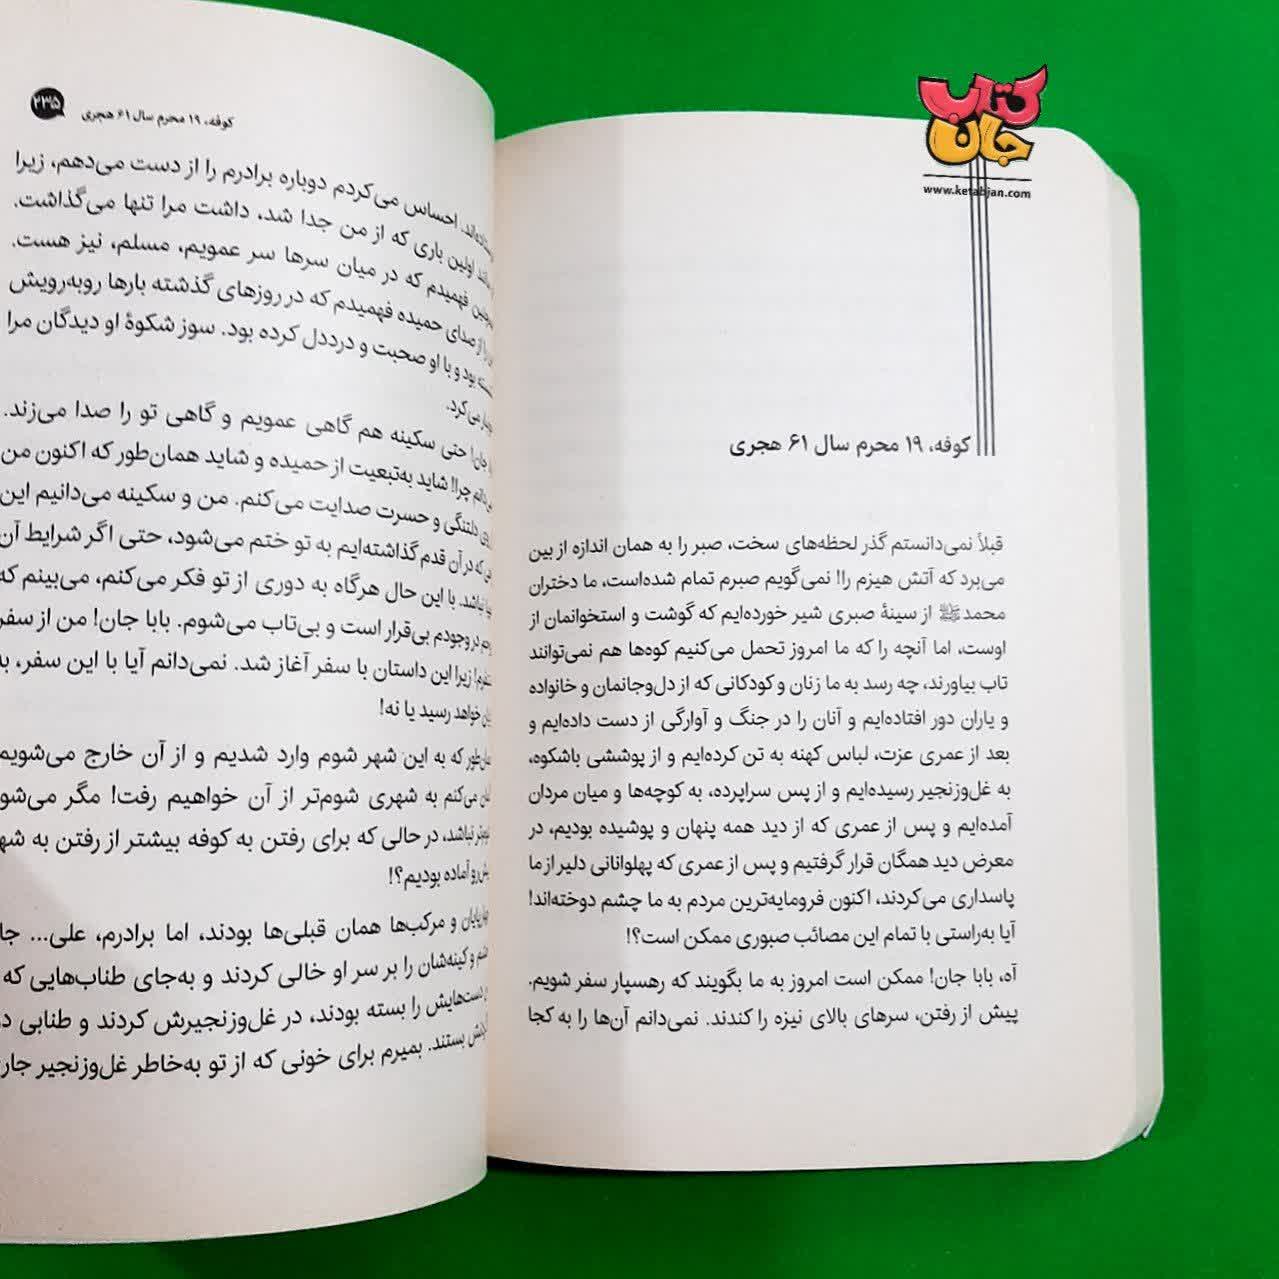 کتاب
جان
www.ketabjan.com
کوفه، ۱۹ محرم سال ۶۱ هجری
قبلاً نمی‌دانستم گذر لحظه‌های سخت، صبر را به همان اندازه از بین
می‌برد که آتش هیزم را! نمی‌گویم صبرم تمام شده‌است، ما دختران
محمدﷺ از سینهٔ صبری شیر خورده‌ایم که گوشت و استخوانمان از
اوست، اما آنچه را که ما امروز تحمل می‌کنیم کوه‌ها هم نمی‌توانند
تاب بیاورند، چه رسد به ما زنان و کودکانی که از دل‌وجانمان و خانواده
و یاران دور افتاده‌ایم و آنان را در جنگ و آوارگی از دست داده‌ایم و
بعد از عمری عزت، لباس کهنه به تن کرده‌ایم و از پوششی باشکوه،
به غل‌وزنجیر رسیده‌ایم و از پس سراپرده، به کوچه‌ها و میان مردان
آمده‌ایم و پس از عمری که از دید همه پنهان و پوشیده بودیم، در
معرض دید همگان قرار گرفتیم و پس از عمری که پهلوانانی دلیر از ما
پاسداری می‌کردند، اکنون فرومایه‌ترین مردم به ما چشم دوخته‌اند!
آیا به‌راستی با تمام این مصائب صبوری ممکن است؟!
آه، بابا جان! ممکن است امروز به ما بگویند که رهسپار سفر شویم.
پیش از رفتن، سرهای بالای نیزه را کندند. نمی‌دانم آن‌ها را به کجا
کوفه، ۱۹ محرم سال ۶۱ هجری
۲۳۵
احساس می‌کردم دوباره برادرم را از دست می‌دهم، زیرا
اولین باری که از من جدا شد، داشت مرا تنها می‌گذاشت.
فهمیدم که در میان سرها سر عمویم، مسلم، نیز هست.
از صدای حمیده فهمیدم که در روزهای گذشته بارها روبه‌رویش
بود و با او صحبت و درددل کرده بود. سوز شکوهٔ او دیدگان مرا
می‌کرد.
جان! حتی سکینه هم گاهی عمویم و گاهی تو را صدا می‌زند.
چرا! شاید به‌تبعیت از حمیده و شاید همان‌طور که اکنون من
دلتنگی و حسرت صدایت می‌کنم. من و سکینه می‌دانیم این
که در آن قدم گذاشته‌ایم به تو ختم می‌شود، حتی اگر شرایط آن
نباشد. با این حال هرگاه به دوری از تو فکر می‌کنم، می‌بینم که
در وجودم بی‌قرار است و بی‌تاب می‌شوم. بابا جان! من از سفر
زیرا این داستان با سفر آغاز شد. نمی‌دانم آیا با این سفر، به
خواهد رسید یا نه!
که به این شهر شوم وارد شدیم و از آن خارج می‌شویم
می‌کنم به شهری شوم‌تر از آن خواهیم رفت! مگر می‌شود
نباشد، در حالی که برای رفتن به کوفه بیشتر از رفتن به شهر
آماده بودیم؟!
و مرکب‌ها همان قبلی‌ها بودند، اما برادرم، علی...
و کینه‌شان را بر سر او خالی کردند و به‌جای طناب‌هایی که
دست‌هایش را بسته بودند، در غل‌وزنجیرش کردند و طنابی
بستند. بمیرم برای خونی که از تو به‌خاطر غل‌وزنجیر